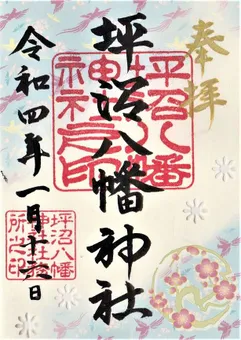 奉拝
坪沼八幡神社
坪沼八幡
神社之印
令和四年一月十二日
坪沼八幡
神社社務
所之印